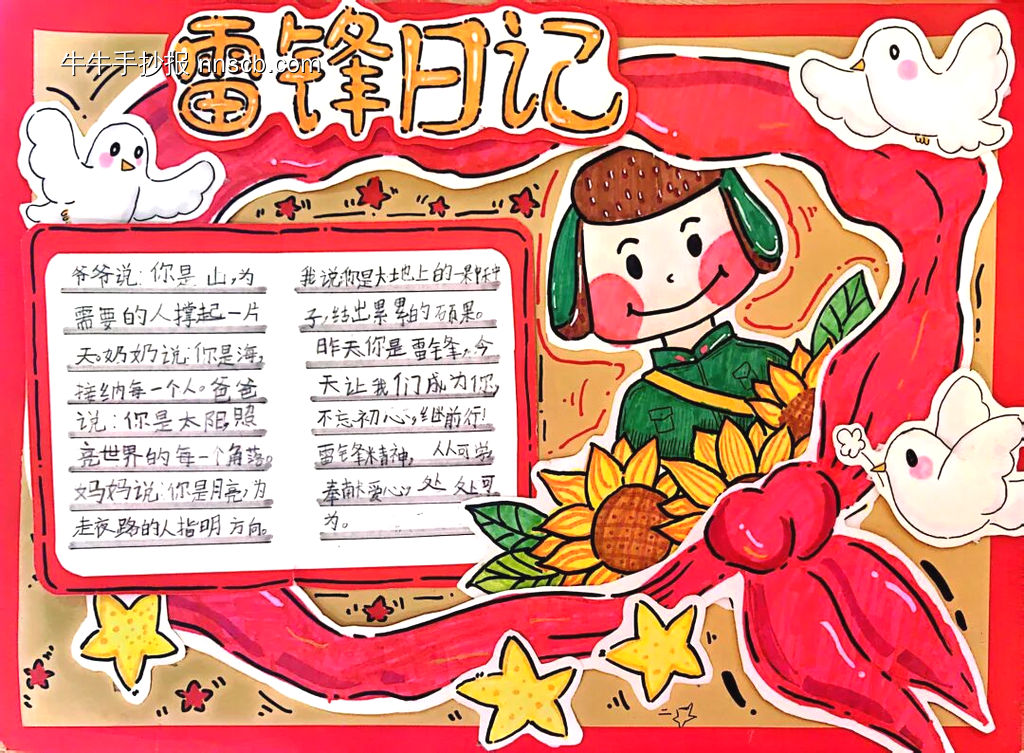 雷锋日记
牛牛手抄报 nnscb.com
爷爷说:你是山,为
需要的人撑起一片
天。奶奶说:你是海,
接纳每一个人。爸爸
说:你是太阳,照
亮世界的每一个角落。
妈妈说:你是月亮,为
走夜路的人指明方向。
我说:你是大地上的一颗种
子,结出累累的硕果。
昨天你是雷锋,今
天让我们成为你,
不忘初心,继前行!
雷锋精神,人人可学,
奉献爱心,处处可
为。